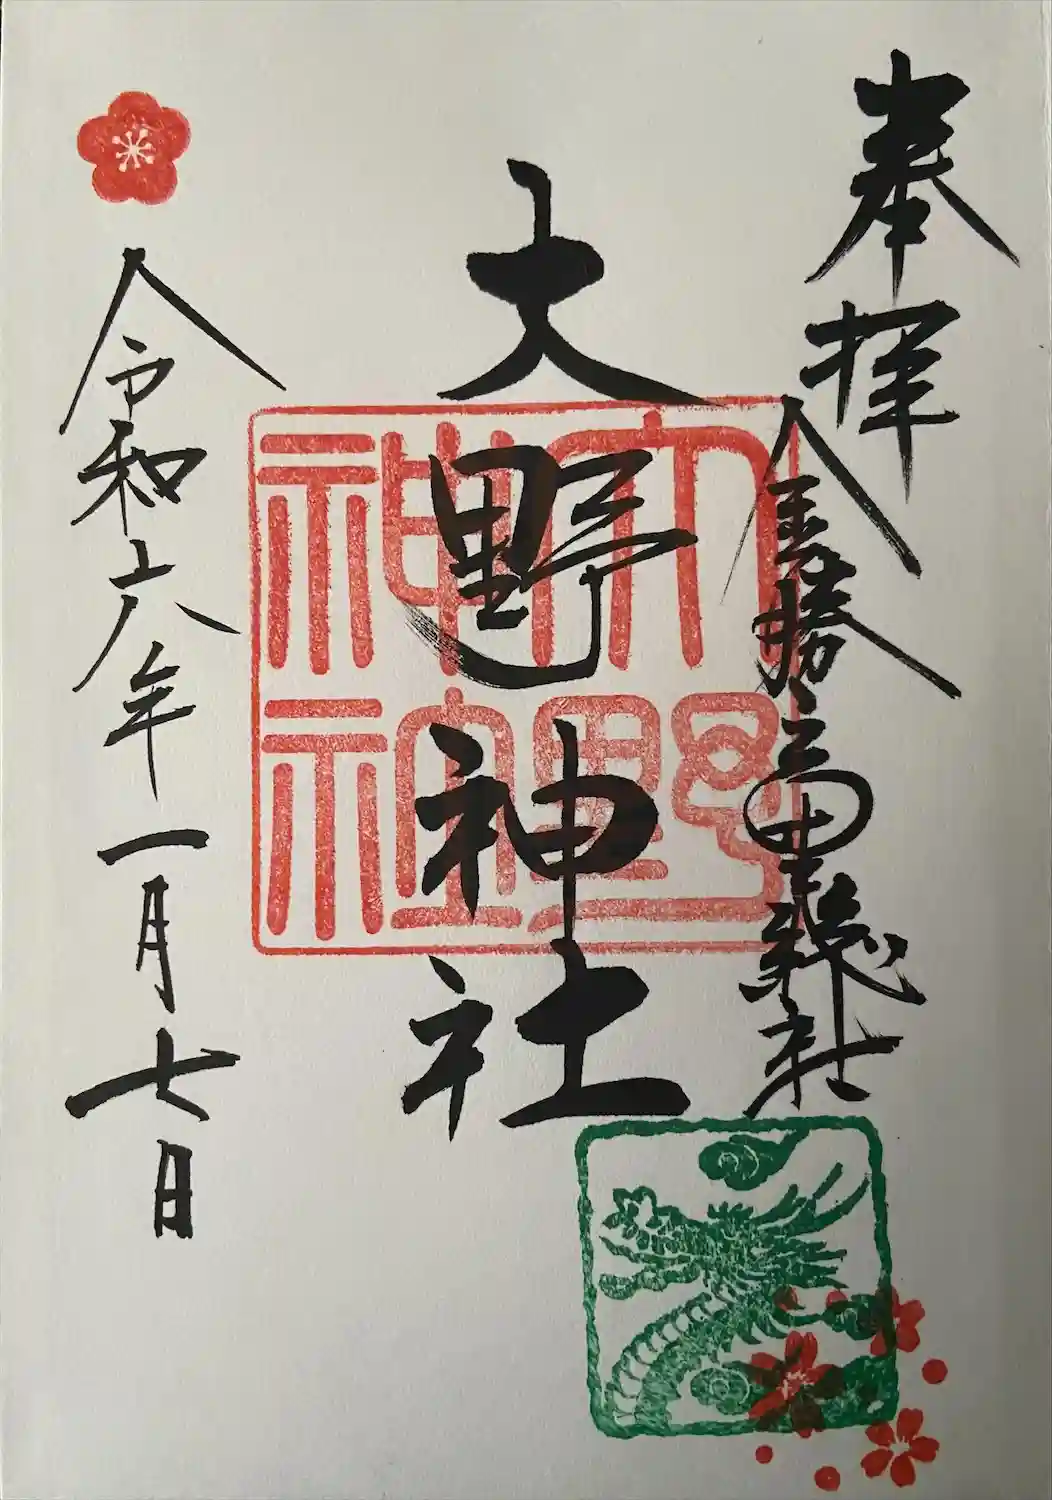 奉拝
金勝総社
大野神社
大野
神社
令和六年一月七日